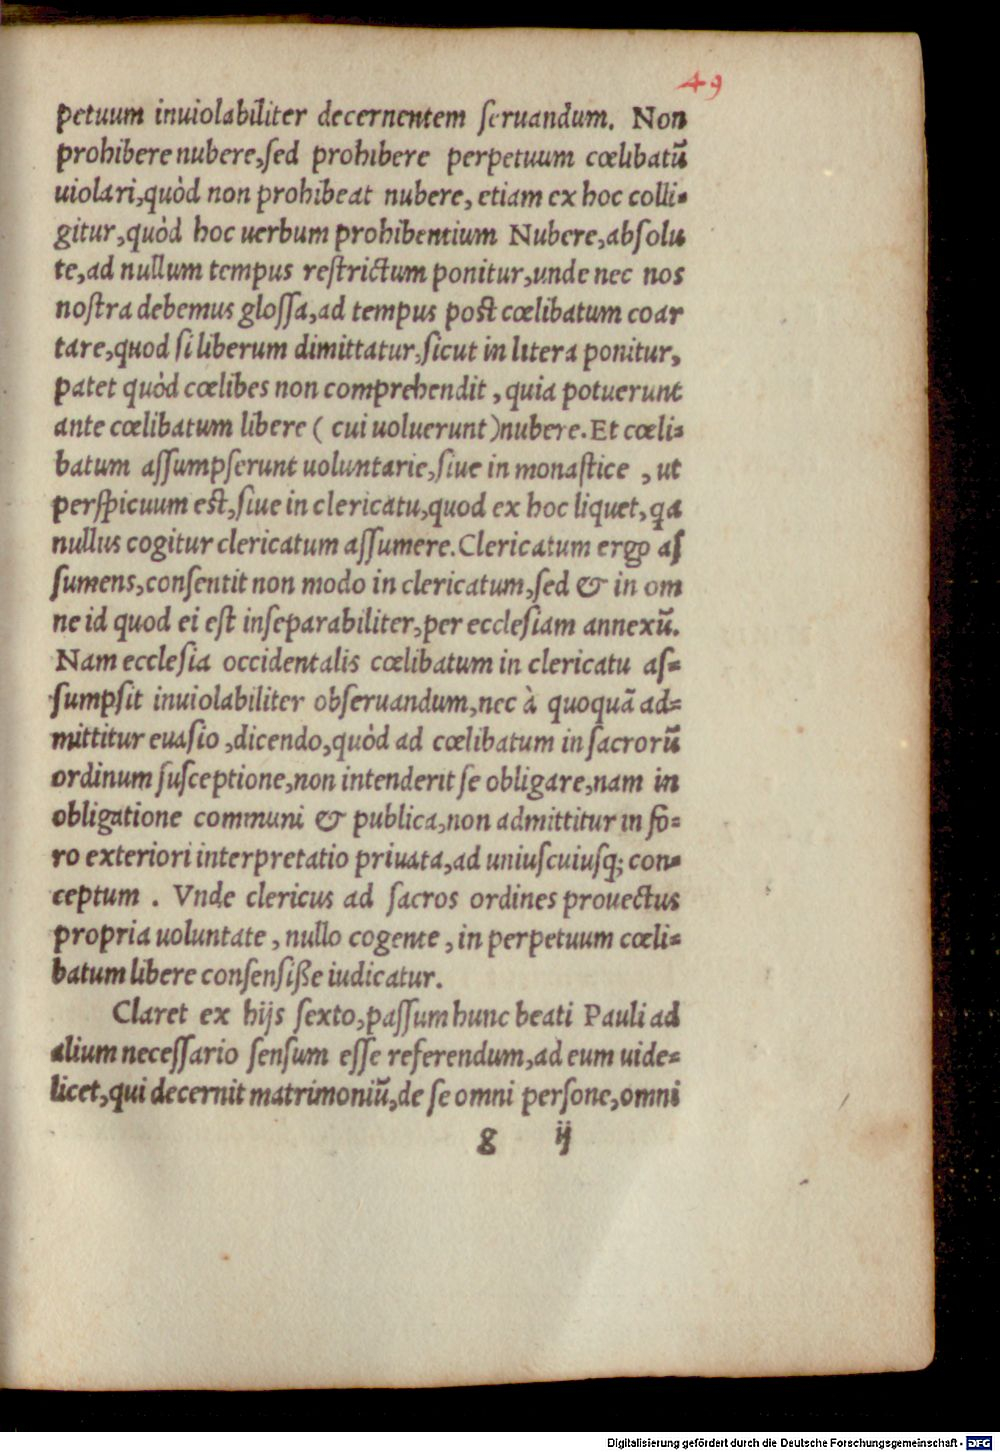 49
petuum inuiolabiliter decernentem ſeruandum. Non
prohibere nubere,ſed prohibere perpetuum cœlibatũ
uiolari,quòd non prohibeat nubere, etiam ex hoc colli⸗
gitur,quòd hoc uerbum prohibentium Nubere,abſolu
te,ad nullum tempus reſtrictum ponitur,unde nec nos
noſtra debemus gloſſa,ad tempus poſt cœlibatum coar
tare,quod ſi liberum dimittatur,ſicut in litera ponitur,
patet quòd cœlibes non comprehendit, quia potuerunt
ante cœlibatum libere ( cui uoluerunt )nubere. Et cœli⸗
batum aſſumpſerunt uoluntarie,ſiue in monaſtice , ut
perſpicuum eſt,ſiue in clericatu,quod ex hoc liquet,qa
nullus cogitur clericatum aſſumere. Clericatum ergo aſ
ſumens,conſentit non modo in clericatum,ſed & in om
ne id quod ei eſt inſeparabiliter,per eccleſiam annexũ.
Nam eccleſia occidentalis cœlibatum in clericatu aſ⸗
ſumpſit inuiolabiliter obſeruandum,nec à quoquã ad⸗
mittitur euaſio ,dicendo,quòd ad cœlibatum in ſacrorũ
ordinum ſuſceptione,non intenderit ſe obligare,nam in
obligatione communi & publica,non admittitur in fo⸗
ro exteriori interpretatio priuata,ad uniuſcuiuſq; con⸗
ceptum . Vnde clericus ad ſacros ordines prouectus
propria uoluntate , nullo cogente , in perpetuum cœli⸗
batum libere conſenſiße iudicatur.
Claret ex hijs ſexto,paſſum hunc beati Pauli ad
alium neceſſario ſenſum eſſe referendum,ad eum uide⸗
licet,qui decernit matrimoniũ,de ſe omni perſone,omni
g ij
Digitalisierung gefördert durch die Deutsche Forschungsgemeinschaft - DFG